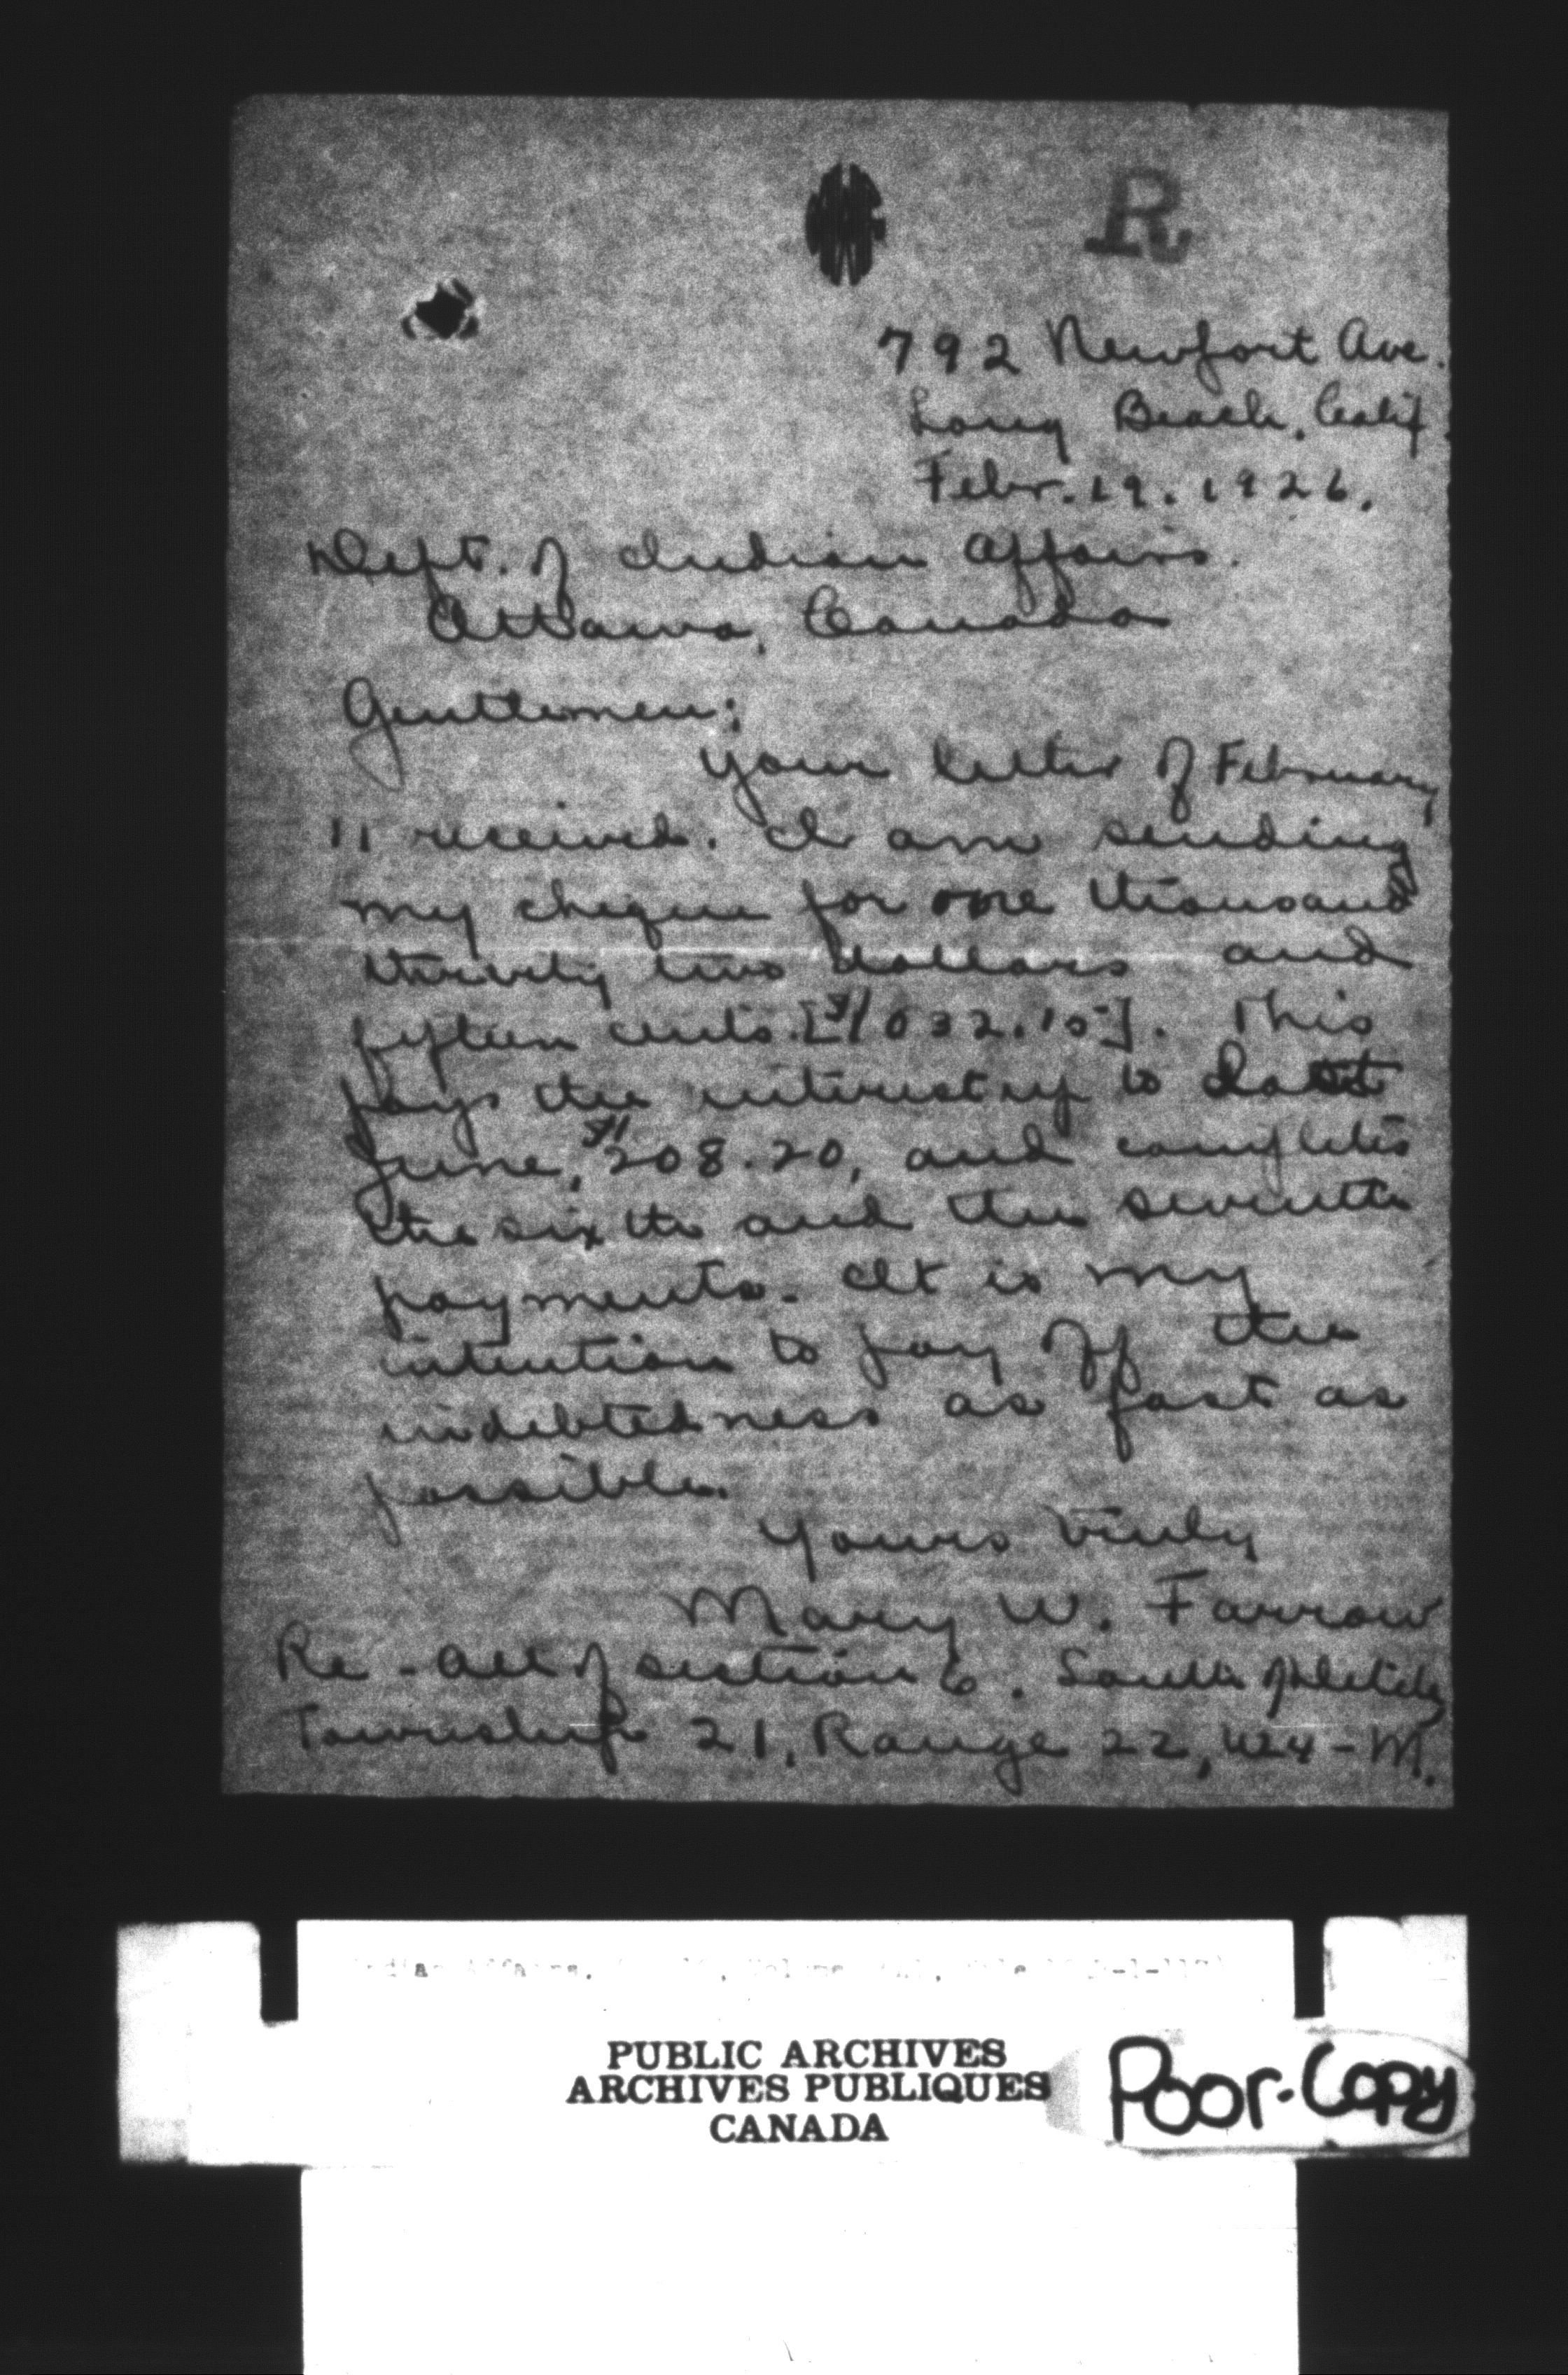 R
792 Newfort Ave.
Long Beach, Calif.
Febr. 19. 1926.
Dept. of Indian Affairs.
Ottawa, Canada
Gentlemen;
Your letter of February
11 received. I am sending
my cheque for one thousand
thirty two dollars and
fifteen cents. [$1032.15]. This
pays the interest up to date
June, $208.20, and completes
the sixth and the seventh
payments. It is my
intention to pay off the
indebtedness as fast as
possible.
Yours truly
Mary W. Farrow
Re - All of section 6. South of
Township 21, Range 22, W4-M.
PUBLIC ARCHIVES
ARCHIVES PUBLIQUES
CANADA
Poor-Copy